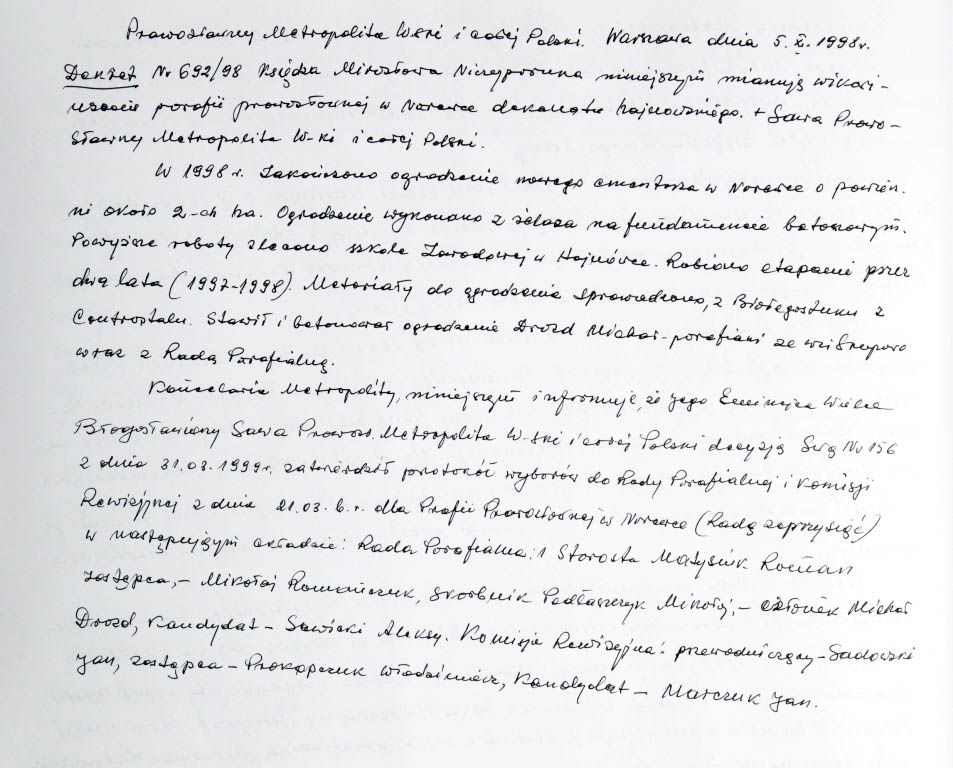 Prawosławny Metropolita W-ski i całej Polski. Warszawa dnia 5.X.1998r.
Nr 692/98 Księdza Mirosława Niczyporuka niniejszym mianuję wikari-
uszem parafii prawosławnej w Narewce dekanatu hajnowskiego. + Sawa Prawo-
sławny Metropolita W-ki i całej Polski.
W 1998 r. zakończono ogrodzenie nowego cmentarza w Narewce o powierz.
ni około 2-ch ha. Ogrodzenie wykonano z żelaza na fundamencie betonowym.
Powyższe roboty zlecono szkole Zawodowej w Hajnówce. Robiono etapami przez
dwa lata (1997-1998). Materiały do ogrodzenia sprowadzono, z Białegostoku z
Centrostalu. Stawił i betonował ogrodzenie Drozd Michał - parafianin ze wsi
wraz z Radą Parafialną.
Kancelaria Metropolity, niniejszym informuje, że Jego Eminencja Wielce
Błogosławiony Sawa Prawosł. Metropolita W-ski i całej Polski decyzją Swą Nr 156
z dnia 31.03.1999r. zatwierdził protokół wyborów do Rady Parafialnej i Komisji
Rewizyjnej z dnia 21.03. b.r. dla Prafii Prawosławnej w Narewce (Radę zaprzysiąć)
w następującym składzie: Rada Parafialna: 1 Starosta Matysiuk Roman
zastępca, - Mikołaj Romańczuk, Skarbnik Podłaszczyk Mikołaj, - członek Michał
Drozd, Kandydat - Sawicki Aleksy. Komisja Rewizyjna: przewodniczący - Sadowski
Jan, zastępca - Prokopczuk Włodzimierz, Kandydat - Marczuk Jan.